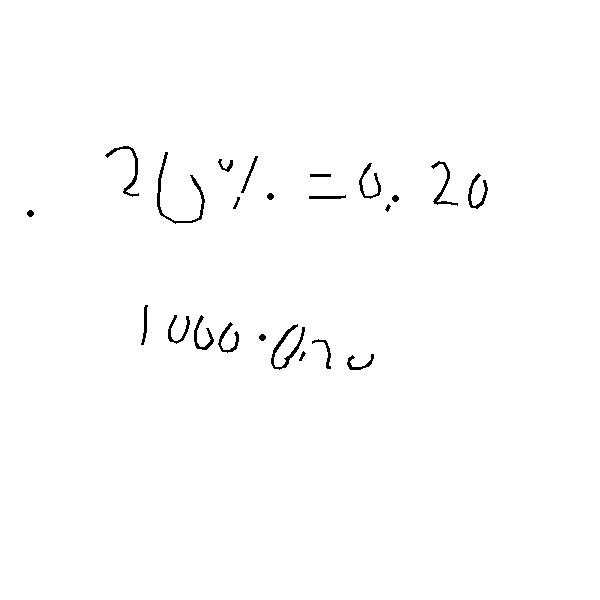 20% = 0.20
1000 · 0,20